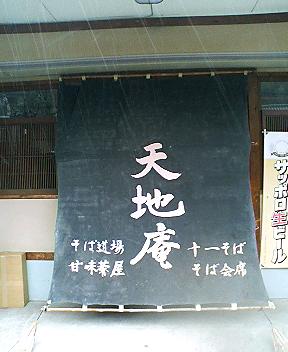 天地庵
十一そば
そば会席
そば道場
甘味茶屋
サッポロ生ビール